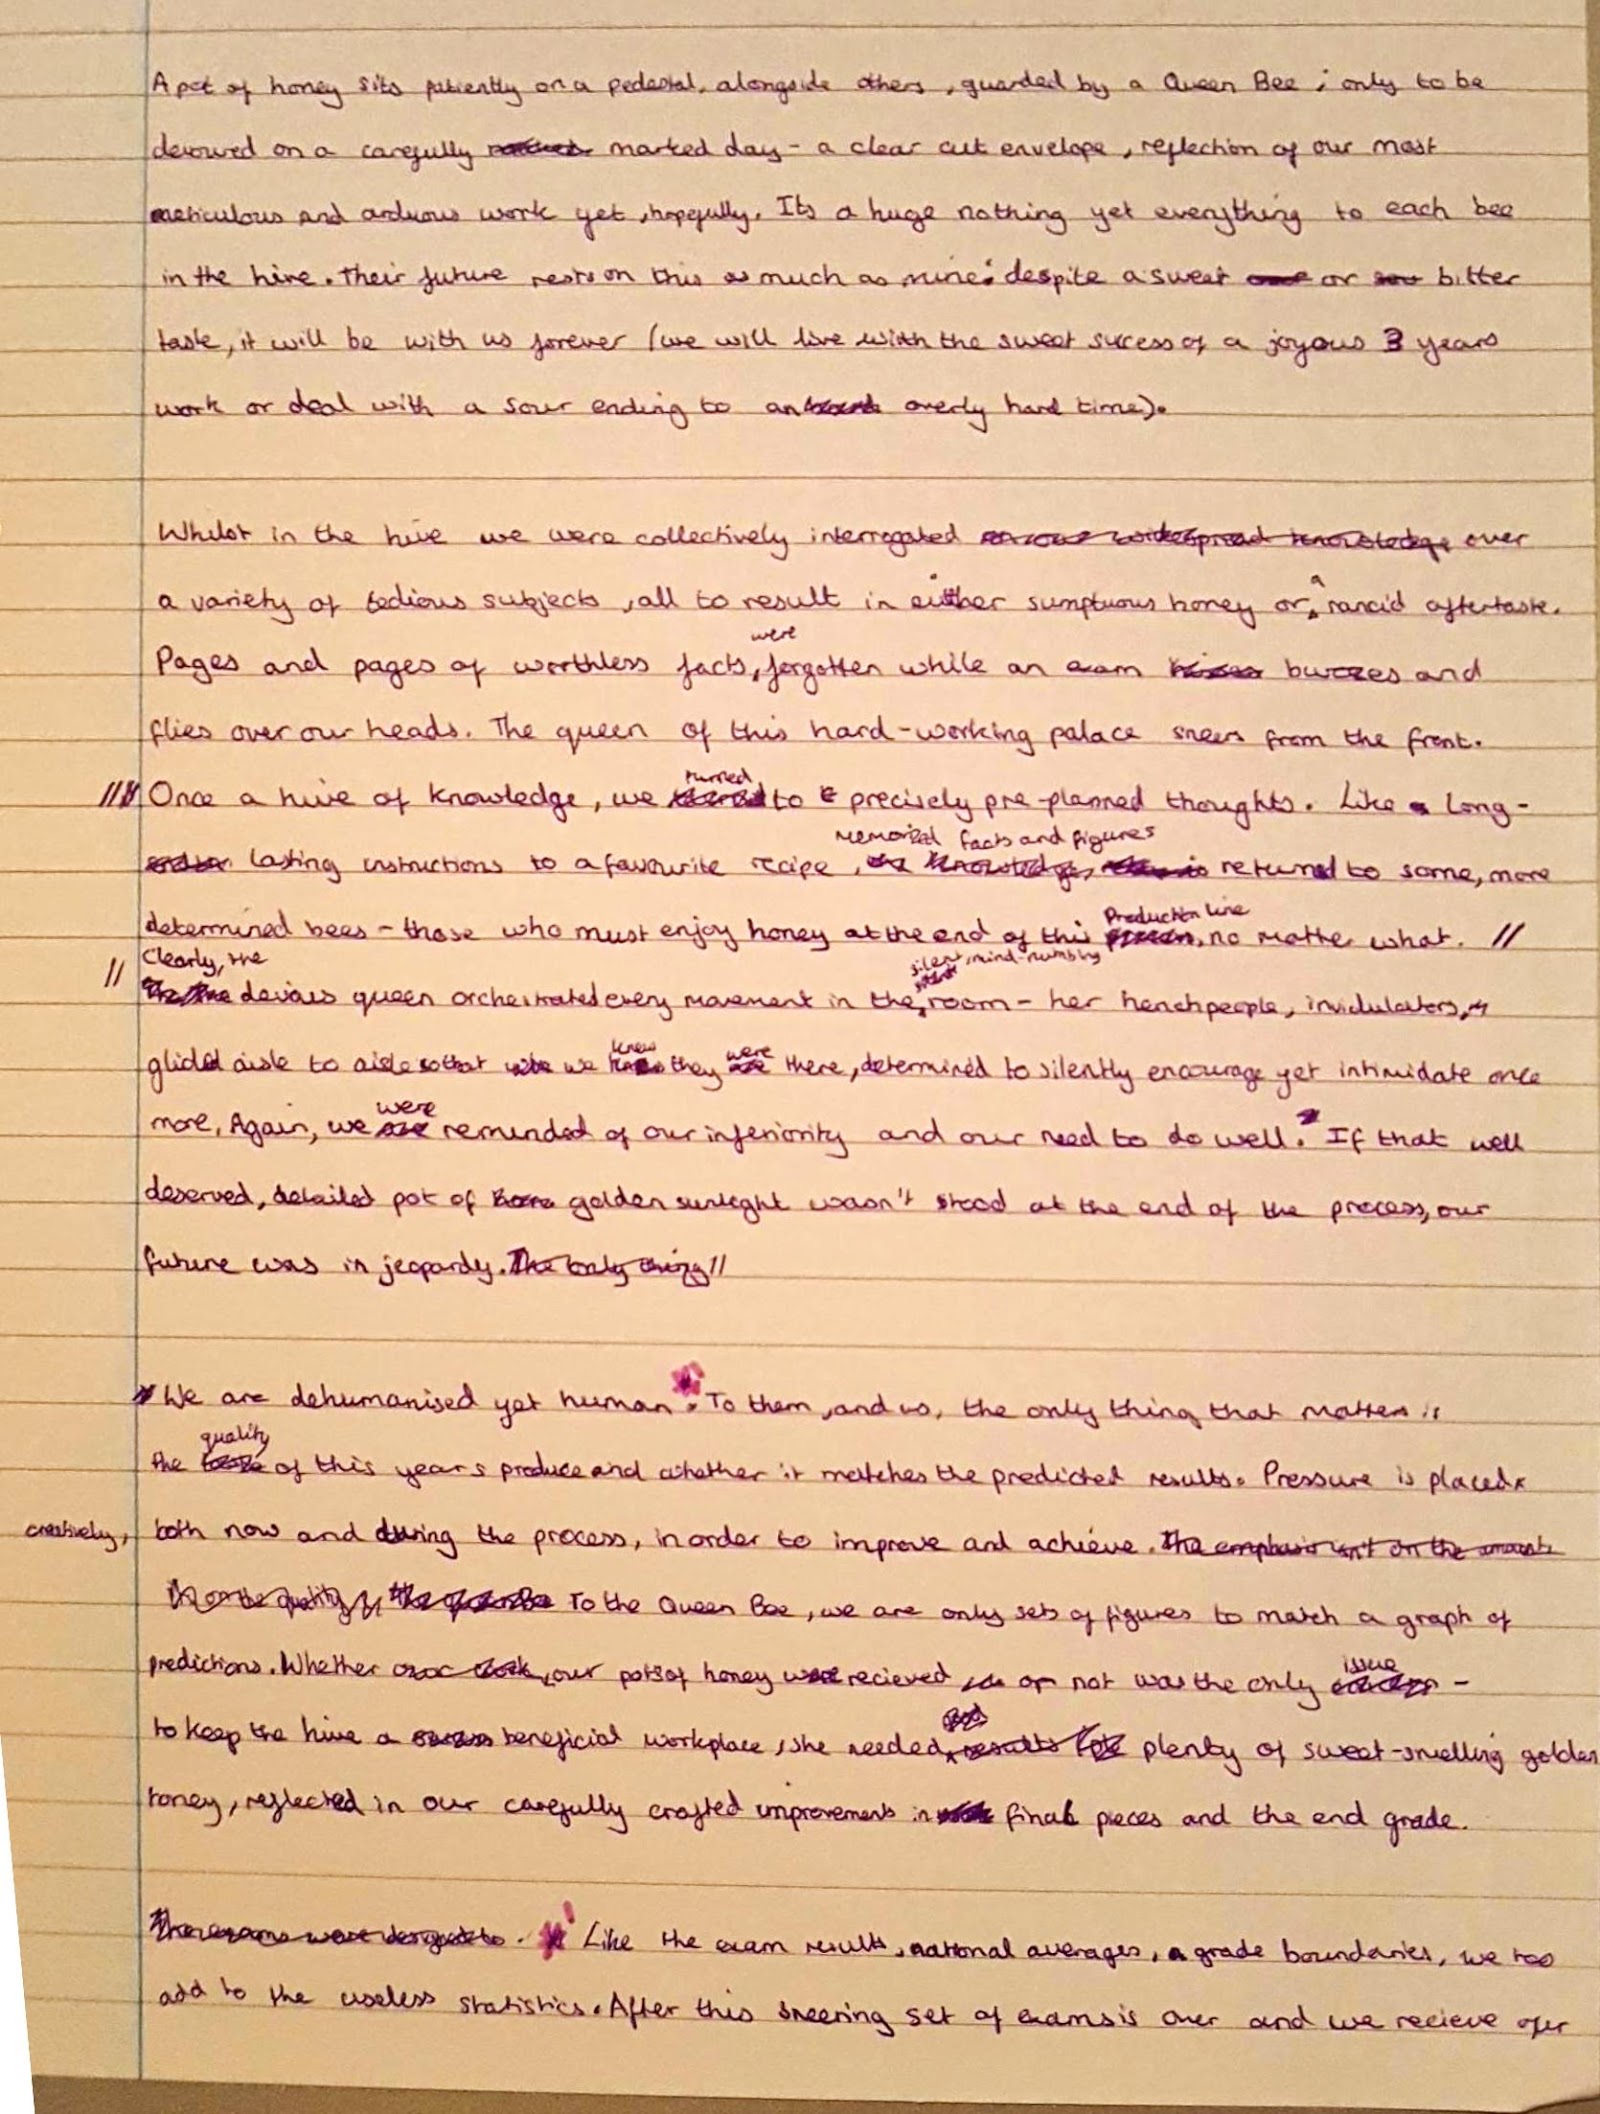 A pot of honey sits patiently on a pedestal, alongside others, guarded by a Queen Bee; only to be
devoured on a carefully marked day - a clear cut envelope, reflection of our most
meticulous and arduous work yet, hopefully. Its a huge nothing yet everything to each bee
in the hive. Their future rests on this as much as mine: despite a sweet or bitter
taste, it will be with us forever (we will live with the sweet success of a joyous 3 years
work or deal with a sour ending to an overly hard time).
Whilst in the hive we were collectively interrogated over
a variety of tedious subjects, all to result in either sumptuous honey or a rancid aftertaste.
Pages and pages of worthless facts, were forgotten while an exam buzzes and
flies over our heads. The queen of this hard-working palace sneers from the front.
// Once a hive of knowledge, we turned to precisely pre-planned thoughts. Like long-
lasting instructions to a favourite recipe, memorised facts and figures returned to some, more
determined bees - those who must enjoy honey at the end of this production line, no matter what. //
// Clearly, the devious queen orchestrated every movement in the silent, mind-numbing room - her henchpeople, invidulators,
glided aisle to aisle so that we knew they were there, determined to silently encourage yet intimidate once
more. Again, we were reminded of our inferiority and our need to do well. If that well
deserved, detailed pot of golden sunlight wasn't stood at the end of the process, our
future was in jeopardy. The only thing //
We are dehumanised yet human. To them, and us, the only thing that matters is
the quality of this years produce and whether it matches the predicted results. Pressure is placed
creatively, both now and during the process, in order to improve and achieve. The emphasis isn't on the amount
To the Queen Bee, we are only sets of figures to match a graph of
predictions. Whether our pots of honey were recieved or not was the only issue -
to keep the hive a beneficial workplace, she needed plenty of sweet-smelling golden
honey, reflected in our carefully crafted improvements in final pieces and the end grade.
Like the exam results, national averages, grade boundaries, we too
add to the useless statistics. After this sneering set of exams is over and we recieve our